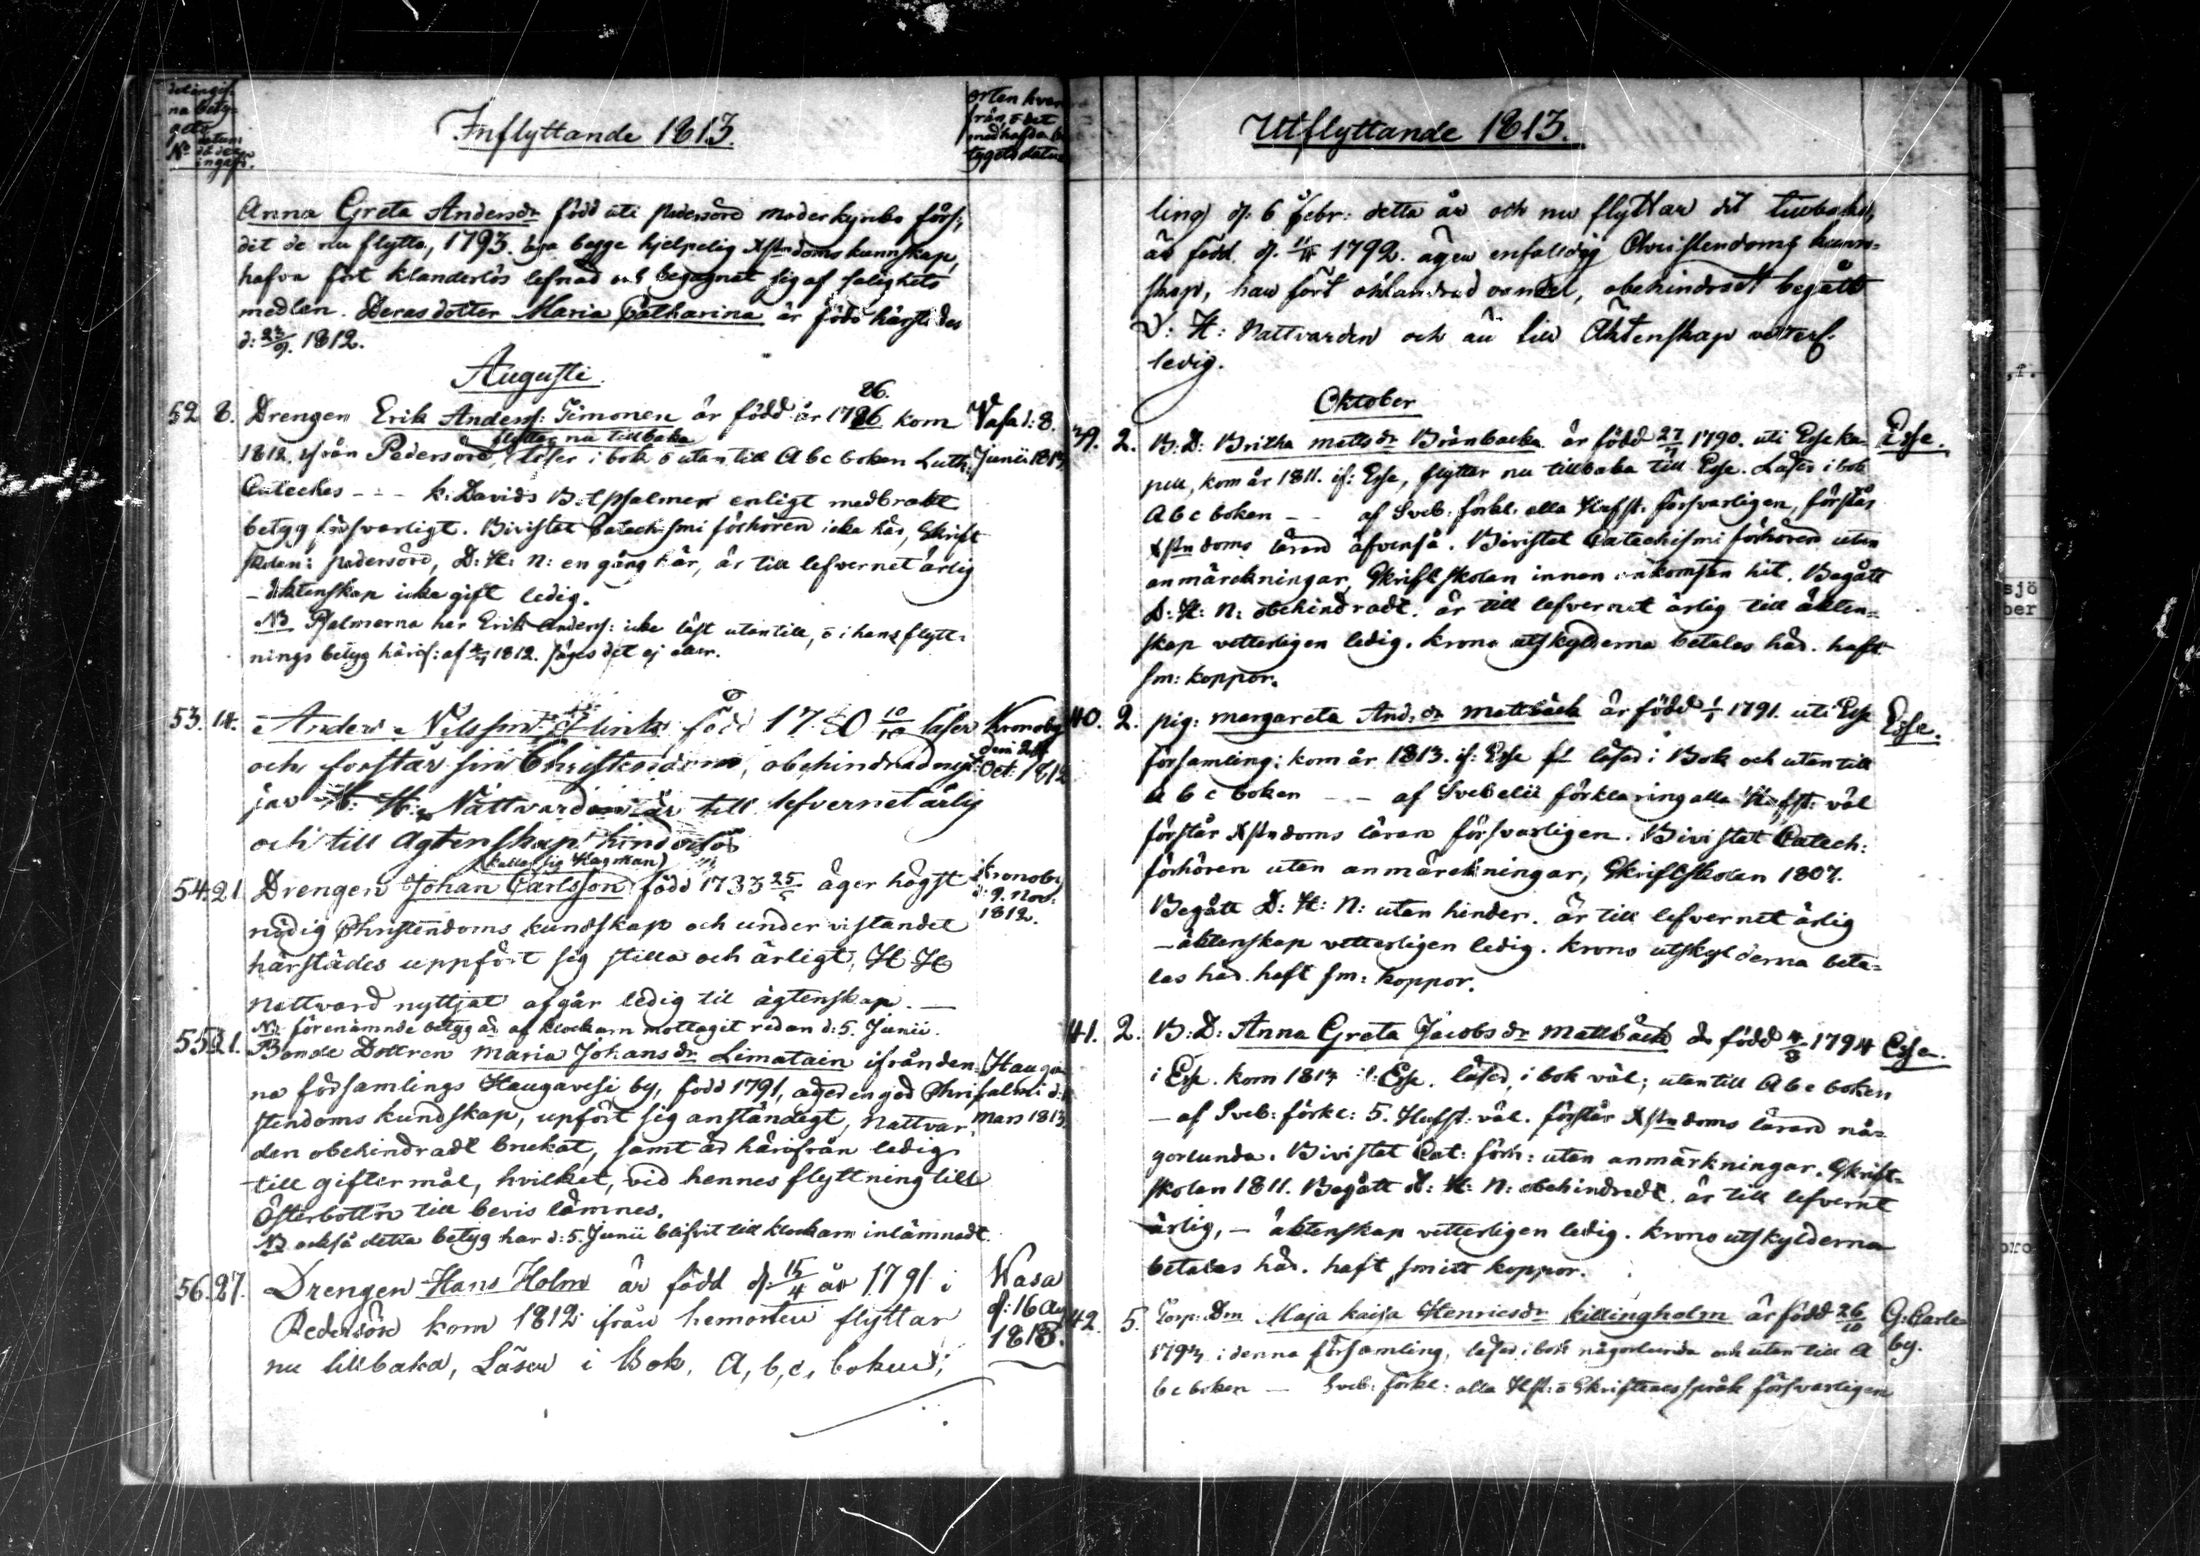 de ingif-
na bety-
gets
No datum
då det
ingafs.
Inflyttande 1813.
orten hvar
ifrån, ō det
medhafda be
tygets datum
Anna Greta Andersdr född uti Pedersöre moderkyrko förs:
dit de nu flytta, 1793. äga begge hjelpelig Xstndoms kunskap,
hafva fört klanderlös lefnad och begagnat sig af salighets
medlen. Deras dotter Maria Catharina är född härstädes
d: 23/9. 1812.
Augusti.
52 8. Drengen Erik Anderss: Timonen är född år 1786 kom
86.
Vasa d: 8.
Junii 1813
flyttar nu tillbaka
1812. ifrån Pedersöre, läser i bok ō utantill Abc boken Luth:
Cateches - - - k: Davids Botpsalmer enligt medbrakt
betyg försvarligt. Bivistat Catechismi förhören icke här, Skrift
skolan i Pedersöre, D: H: N: en gång här, är till lefvernet ärlig
- äktenskap icke gift ledig.
NB Psalmerna har Erik Anderss: icke läst utantill, ō i hans flytt-
nings betyg härif: af 1812. säges det ej eller.
53. 14. Anders Nilsson Flink född 1780 10/10 läser
och förstår sin Christendom, obehindrad nytt-
jar H: H: Nattvarden är till lefvernet ärlig
och till Ägtenskap hinderlös
Kronoby
den
Oct: 1812
(kallar sig Hagman)
54. 21. Drengen Johan Carlsson född 1733 25/ äger högst
nödig Christendoms kundskap och under vistandet
härstädes uppfört sig stilla och ärligt, H H
Nattvard nyttjat afgår ledig til ägtenskap. —
Kronoby
d: 9. Nov:
1812.
NB förenämnde betyg är af klockarn mottagit redan d: 5. Junii.
55 21. Bonde Dottren Maria Johansdr Limatain ifrån den-
na församlings Haugavesi by, född 1791, äger en god Chri
stendoms kundskap, upfört sig anständigt, Nattvar
den obehindradt brukat, samt är härifrån ledig
till giftermål, hvilket, vid hennes flyttning till
Österbottn till bevis lämnes.
Hauga
salmi d:
Mars 1813
NB också detta betyg har d: 5. Junii blifvit till klockarn inlämnadt.
56. 27. Drengen Hans Holm är född d. 15/4 år 1791 i
Pedersöre kom 1812 ifrån hemorten flyttar
nu tillbaka, Läser i Bok, A, b, c, boken;
Wasa
d: 16 Aug
1813.
Utflyttande 1813.
ling d. 6 Febr: detta år och nu flyttar dit tillbaka,
är född d. 1792. äger enfaldig Christendoms kunn-
skap, har fört oklandrad vandel, obehindradt begått
D: H: Nattvarden och är till Äktenskap vetterl.
ledig.
Oktober
39. 2. B: D: Britha Mattsdr Brånbacka är född 27/ 1790. uti Esse ka- Esse.
pell, kom år 1811. if: Esse, flyttar nu tillbaka till Esse. Läser i bok
Abc boken - - af Sveb: förkl: alla Hufst: försvarligen, förstår
Xstndoms läran äfvenså. Bivistat Catechismi förhören utan
anmärckningar, Skriftskolan innan inkomsten hit. Begått
D: H: N: obehindradt. är till lefvernet ärlig till äkten-
skap vetterligen ledig. krono utskylderna betalas här. haft
sm: koppor.
40. 2. pig: Margareta And: dr Mattbäck är född 1/1 1791. uti Esse Esse.
församling: kom år 1813. if: Esse läser i Bok och utantill
a b c boken - - af Svebelii förklaring alla Hufst: väl
förstår Xstndoms läran försvarligen. Bivistat Catech:
förhören utan anmärckningar, Skriftskolan 1807.
Begått D: H: N: utan hinder. är till lefvernet ärlig
- äktenskap vetterligen ledig. krono utskylderna beta-
las här. haft sm: koppor.
41. 2. B: D: Anna Greta Jacobsdr Mattbäck är född 4/8 1794 Esse.
i Esse. kom 1813 if: Esse. läser i bok väl; utantill Abc boken
- af Sveb: förkl: 5. Hufst: väl. förstår Xstndoms läran nå-
gorlunda. Bivistat Cat: förh: utan anmärkningar. Skrift-
skolan 1811. Begått D: H: N: obehindradt. är till lefvernet
ärlig, - äktenskap vetterligen ledig. krono utskylderna
betalas här. haft smitt koppor.
42. 5. Torp: Dm Maja Kaisa Henricsdr Killingholm är född 26/10 G: Carle-
by.
1793 i denna församling, läser i bok någorlunda och utan till A
b c boken - Sveb: förkl: alla Hst: ō Skriftenes språk försvarligen